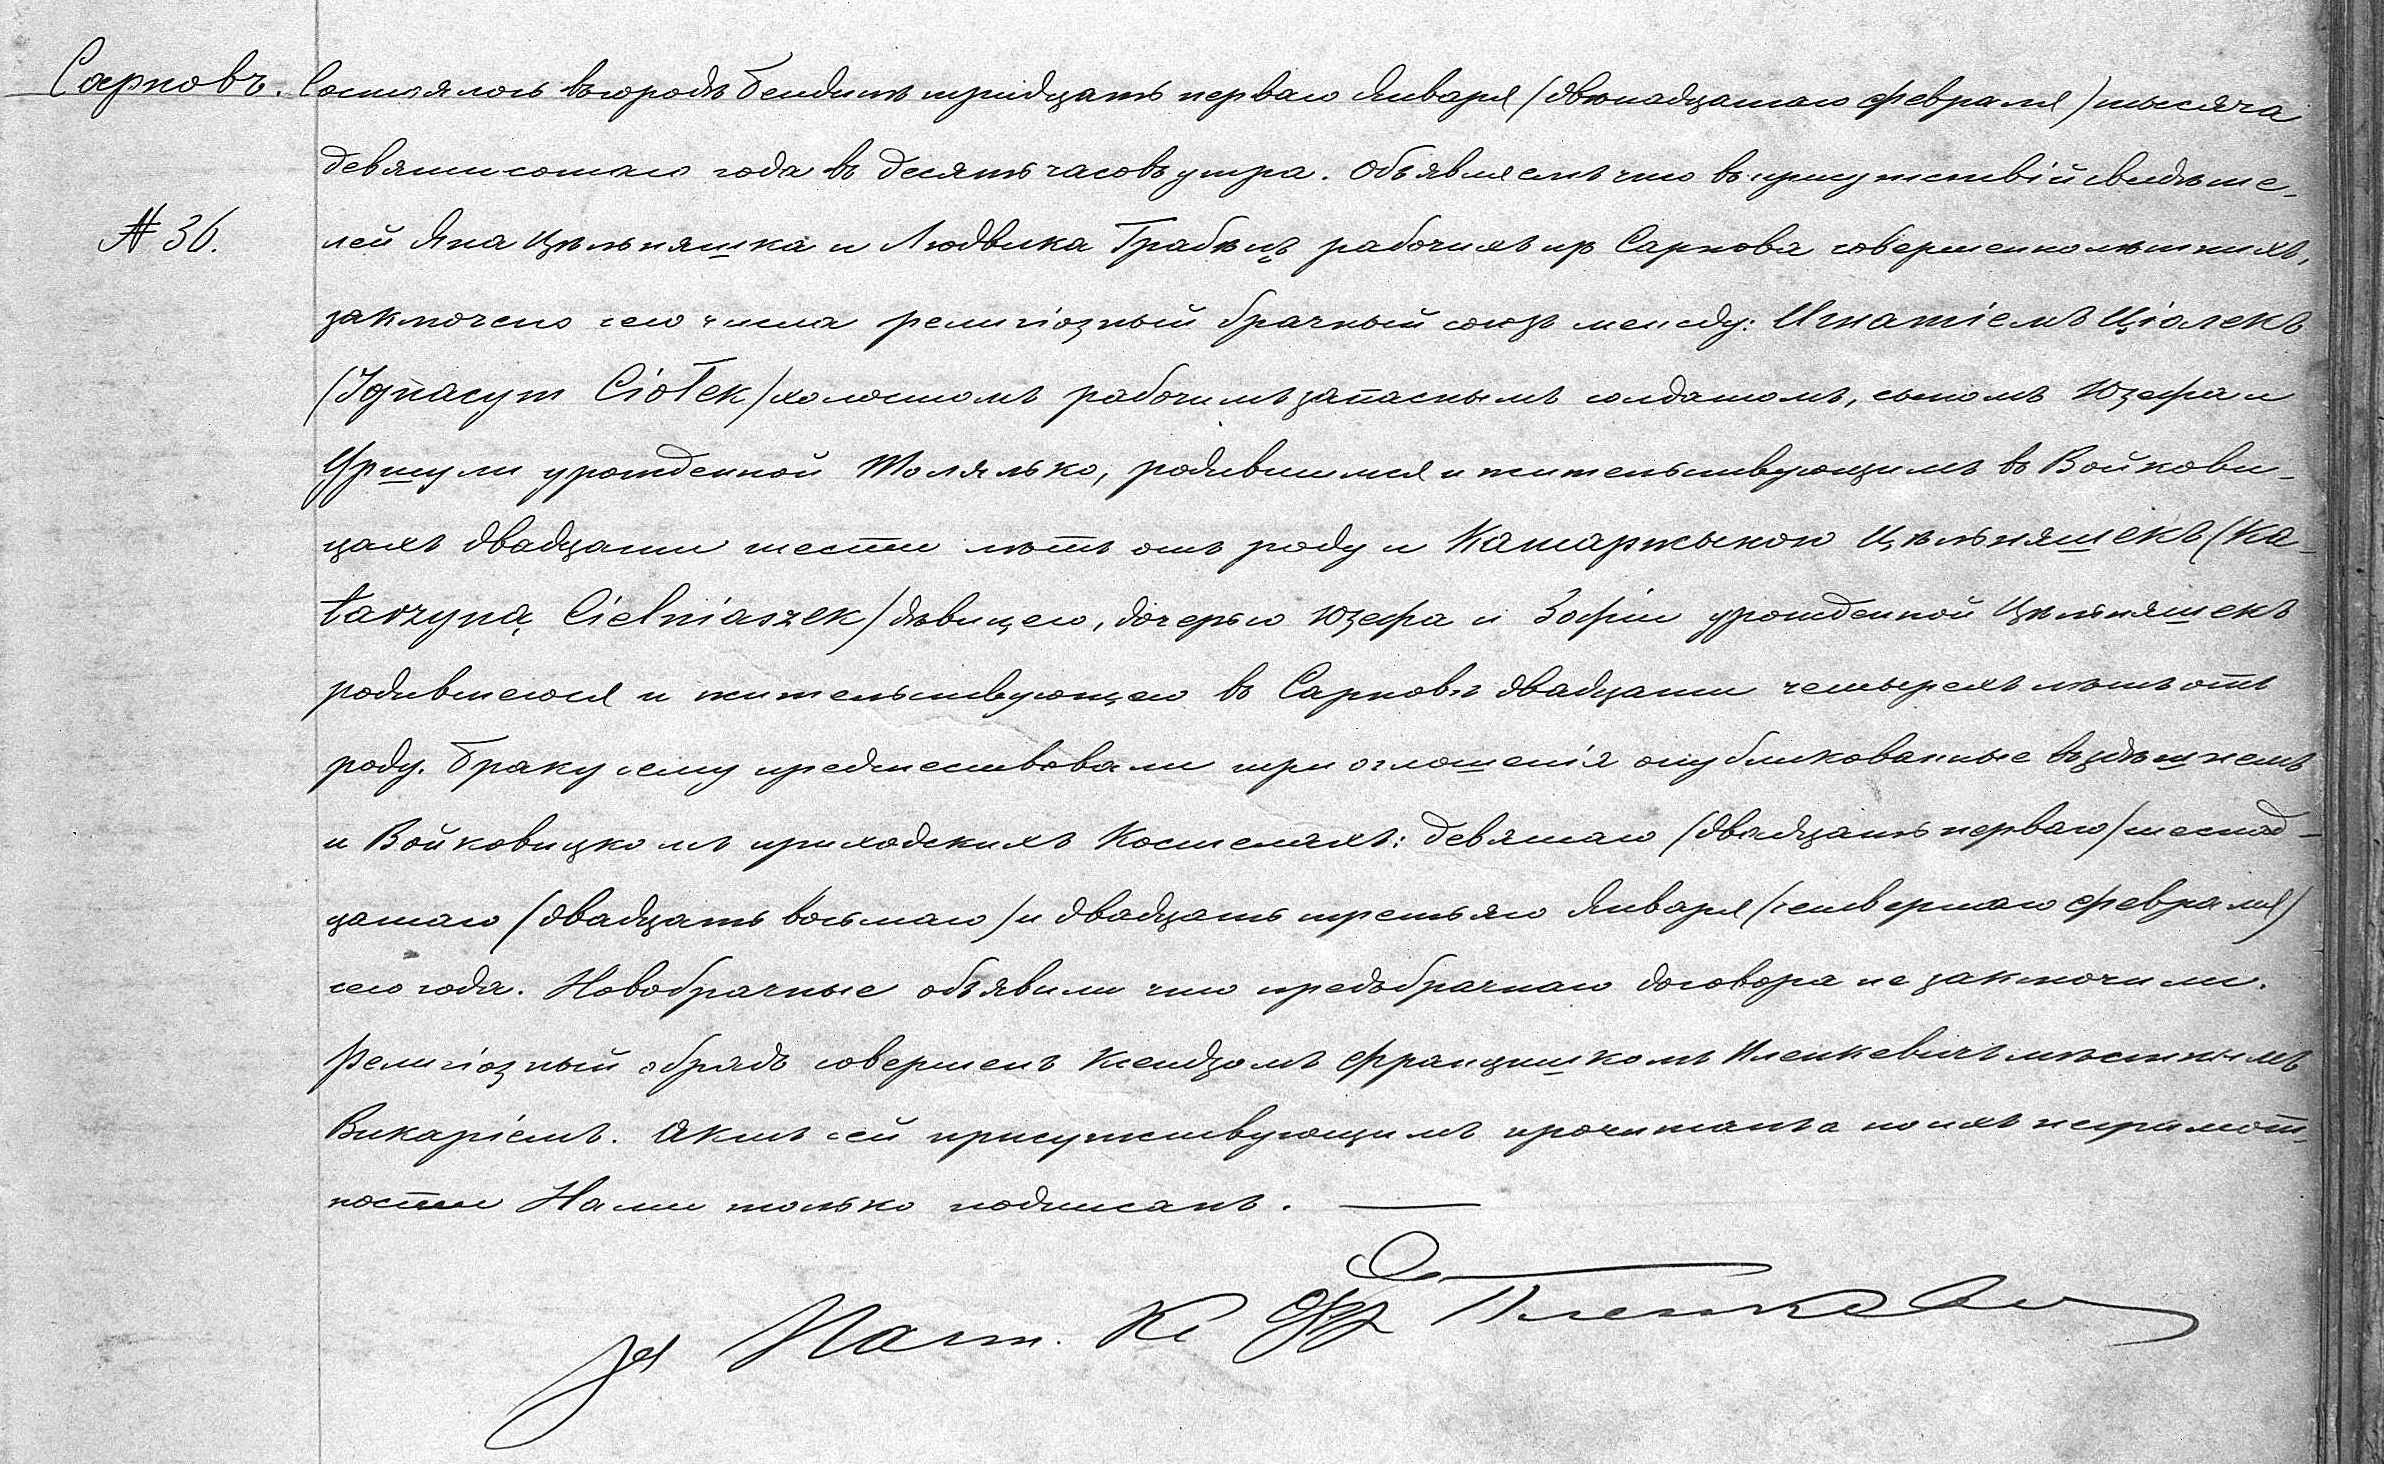 Сарновъ. Состоялось въ городѣ Бендинѣ тридцать перваго Января /двѣнадцатаго февраля/ тысяча
девятисотаго года въ десять часовъ утра. Объявляемъ что въ присутствій свидѣте-
№ 36. лей Яна Цѣльняшка и Людвика Грабѣцъ рабочихъ изъ Сарнова совершеннолѣтнихъ,
заключено сего числа религіозный брачный союзъ между: Игнатіемъ Ціолекъ
/Ignacym Ciołek/ холостымъ рабочимъ запаснымъ солдатомъ, сыномъ Юзефа и
Уршули урожденной Толялько, родившимся и жительствующимъ въ Войкови-
цахъ двадцати шести лѣтъ отъ роду и Катаржыною Цѣльняшекъ (Ka-
tarzyną Cielniaszek/ дѣвицею, дочерью Юзефа и Зофіи урожденной Цѣльняшекъ
родившеюся и жительствующею въ Сарновѣ двадцати четырехъ лѣтъ отъ
роду. Браку сему предшествовали три оглошенія опубликованные въ здѣшнемъ
и Войковицкомъ приходскихъ Костелахъ: девятаго /двадцать перваго/ шестнад-
цатаго /двадцать восьмаго/ и двадцать третьяго Января /четвертаго февраля/
сего года. Новобрачные объявили что предбрачнаго договора не заключили.
Религіозный обрядъ совершенъ Ксендзомъ Францишкомъ Пленкевичъ мѣстнымъ
Викаріемъ. Актъ сей присутствующимъ прочитанъ а по ихъ неграмот-
ности Нами только подписанъ.
Кс Фр Пленкевич